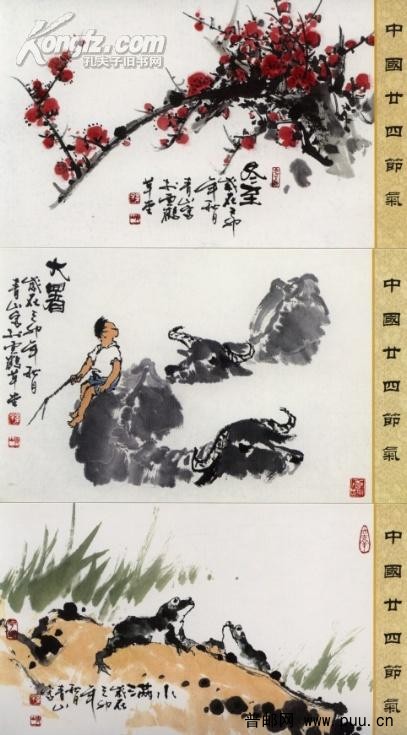 Kongfz.com
孔夫子旧书网
中國廿四節氣
冬至
歲在己卯
年秋月
青山客
於雲鶴
草堂
中國廿四節氣
大暑
歲在己卯年秋月
青山客於雲鶴草堂
中國廿四節氣
小满
歲在
己卯
年
秋月
青山
普邮网 www.puu.cn